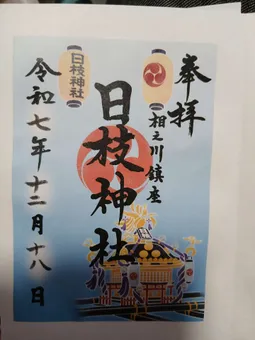 奉拝
相之川鎮座
日枝神社
日枝神社
令和七年十二月十八日